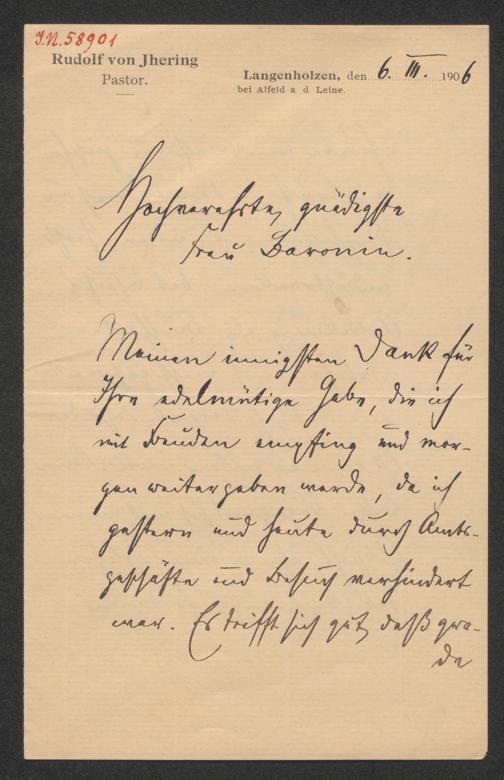 I.N. 58901
Rudolf von Jhering
Pastor.
Langenholzen, den 6. III. 1906
bei Alfeld a. d. Leine.
Hochverehrte, gnädigste
Frau Baronin.
Meinen innigsten Dank für
Ihre edelmütige Gabe, die ich
mit Freuden empfing und mor-
gen weitergeben werde, da ich
gestern und heute durch Amts-
geschäfte und Besuch verhindert
war. Es trifft sich gut, daß gra-
de